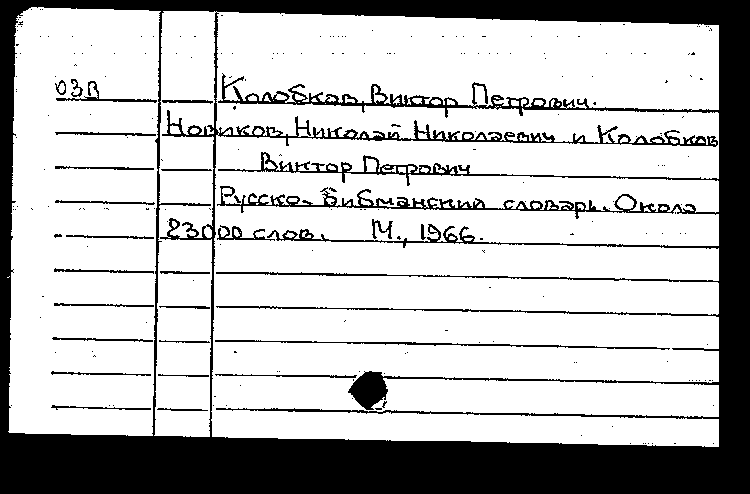 03В Колобков, Виктор Петрович.
Новиков, Николай Николаевич и Колобков
Виктор Петрович
Русско-бирманский словарь. Около
23000 слов. М., 1966.